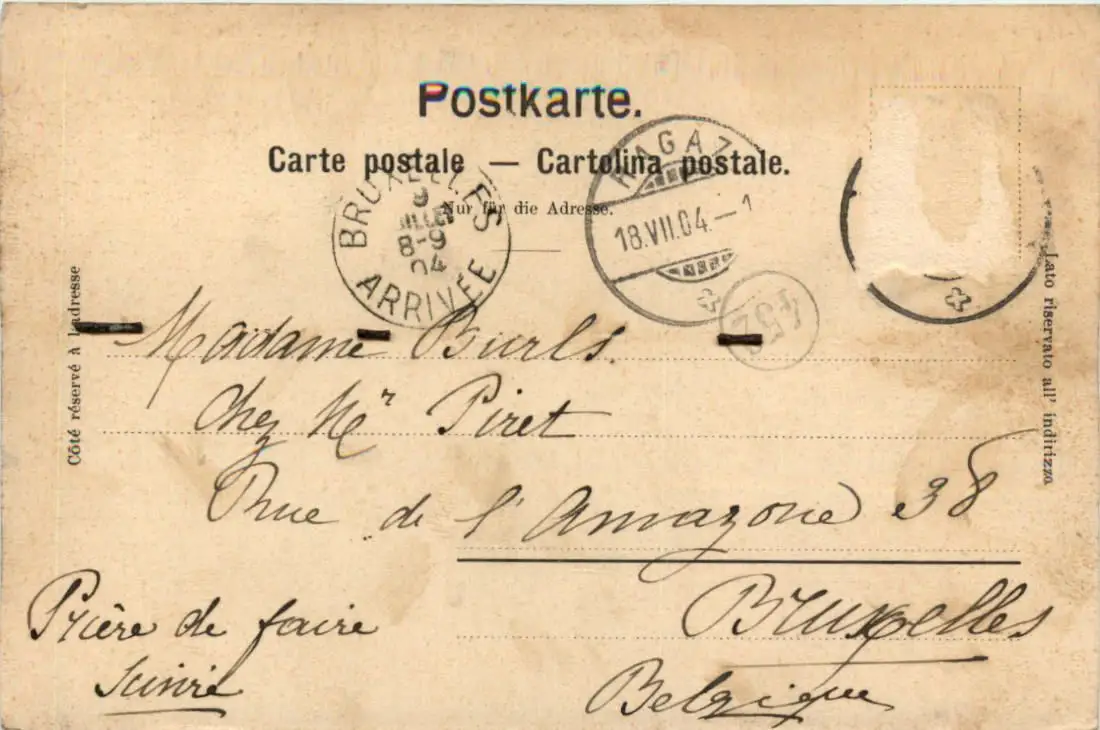 Postkarte.
Carte postale — Cartolina postale.
Nur für die Adresse.
BRUXELLES
9
8-9
04
ARRIVÉE
RAGAZ
18.VII.04.—1
452
Côté réservé à l'adresse
Lato riservato all' indirizzo
Madame Burls.
Chez Mr Piret
Rue de l'Amazone 38
Bruxelles
Belgique
Prière de faire
suivre